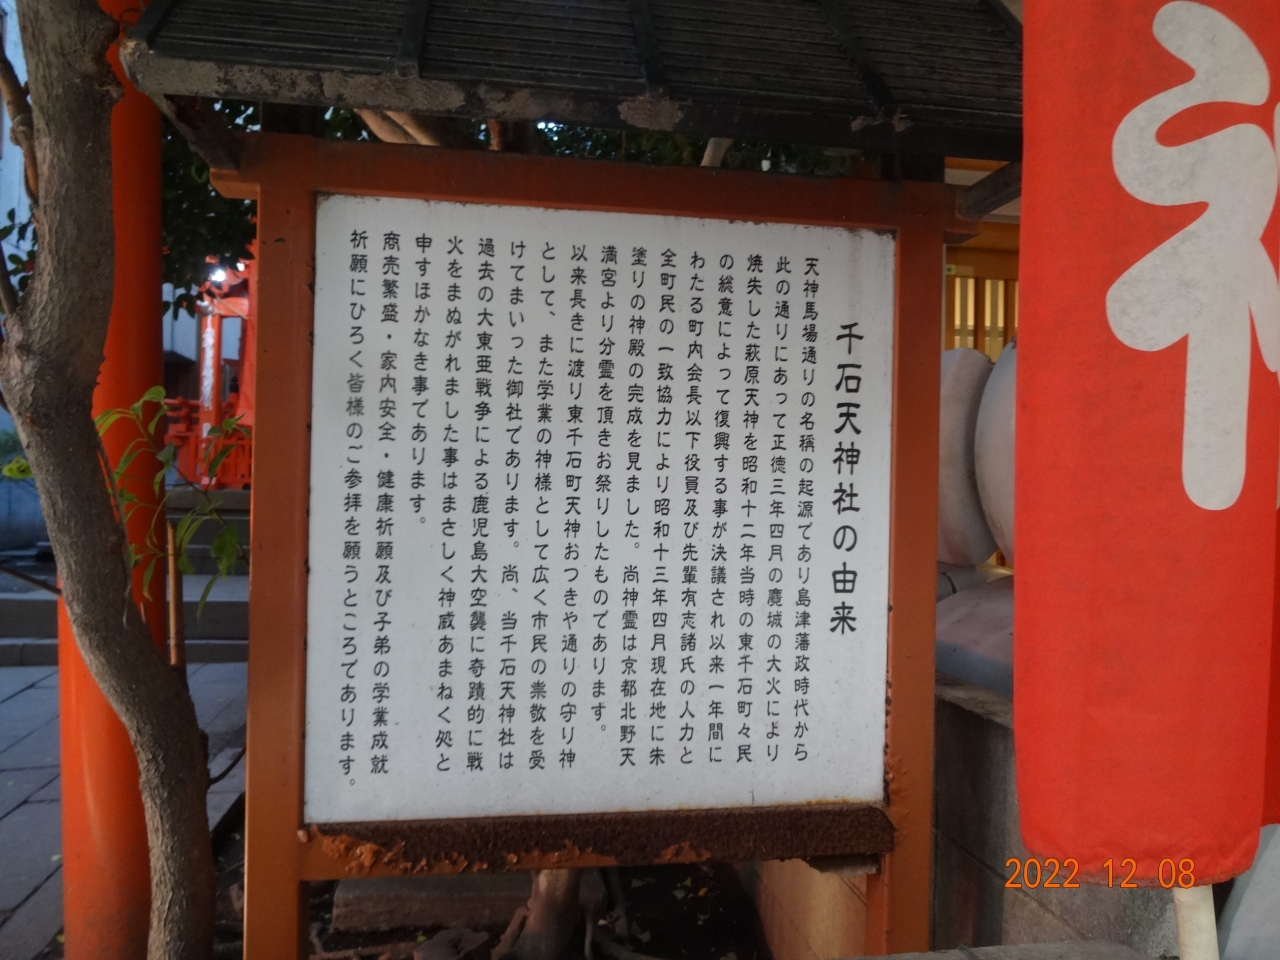 千石天神社の由来
天神馬場通りの名稱の起源であり島津藩政時代から
此の通りにあって正徳三年四月の麑城の大火により
焼失した萩原天神を昭和十二年当時の東千石町々民
の総意によって復興する事が決議され以来一年間に
わたる町内会長以下役員及び先輩有志諸氏の人力と
全町民の一致協力により昭和十三年四月現在地に朱
塗りの神殿の完成を見ました。尚神霊は京都北野天
満宮より分霊を頂きお祭りしたものであります。
以来長きに渡り東千石町天神おつきや通りの守り神
として、また学業の神様として広く市民の崇敬を受
けてまいった御社であります。尚、当千石天神社は
過去の大東亜戦争による鹿児島大空襲に奇蹟的に戦
火をまぬがれました事はまさしく神威あまねく処と
申すほかなき事であります。
商売繁盛・家内安全・健康祈願及び子弟の学業成就
祈願にひろく皆様のご参拝を願うところであります。
2022 12 08